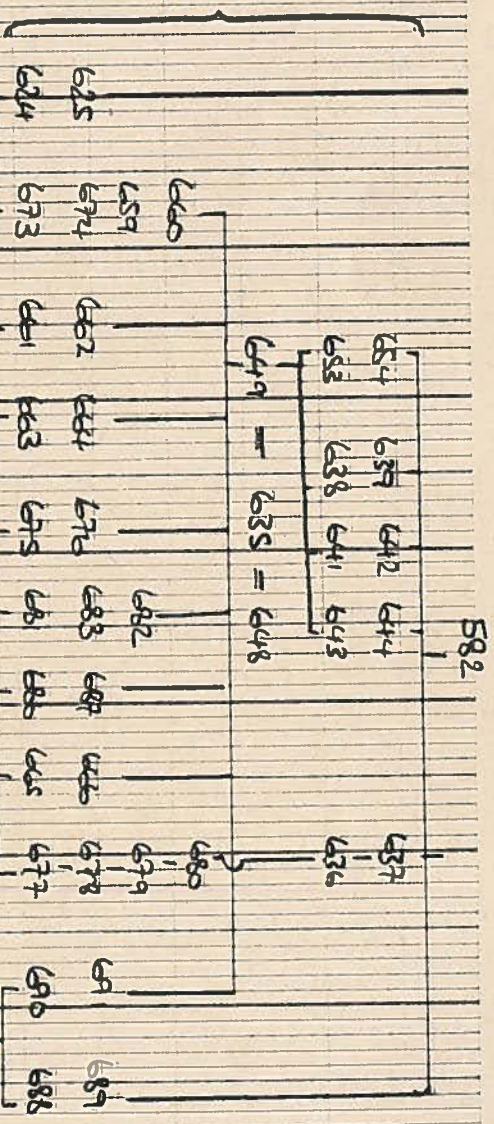 582
654 639 642 644 637
653 638 641 643 636
649 — 635 = 648
660 680
659 682 679
625 674 662 664 676 683 687 666 678 69 689
624 673 661 663 675 681 686 665 677 690 688